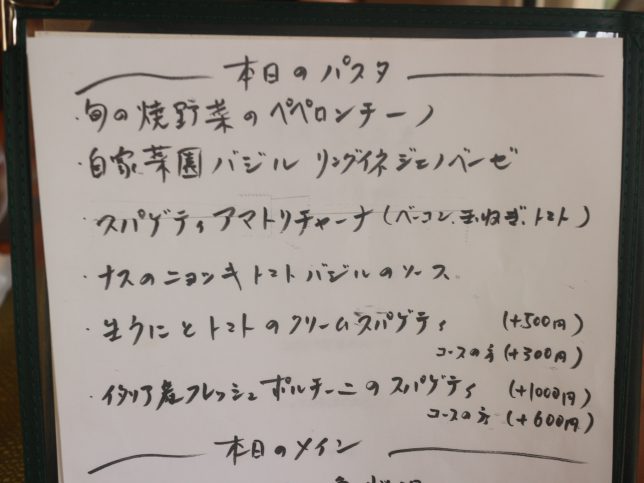 本日のパスタ
・旬の焼野菜のペペロンチーノ
・自家菜園バジル リングイネジェノベーゼ
・スパゲティアマトリチャーナ(ベーコン、玉ねぎ、トマト)
・ナスのニョッキトマトバジルのソース
・生うにとトマトのクリームスパゲティ (+500円)
コースの方(+300円)
・イタリア産フレッシュポルチーニのスパゲティ (+1000円)
コースの方(+600円)
本日のメイン